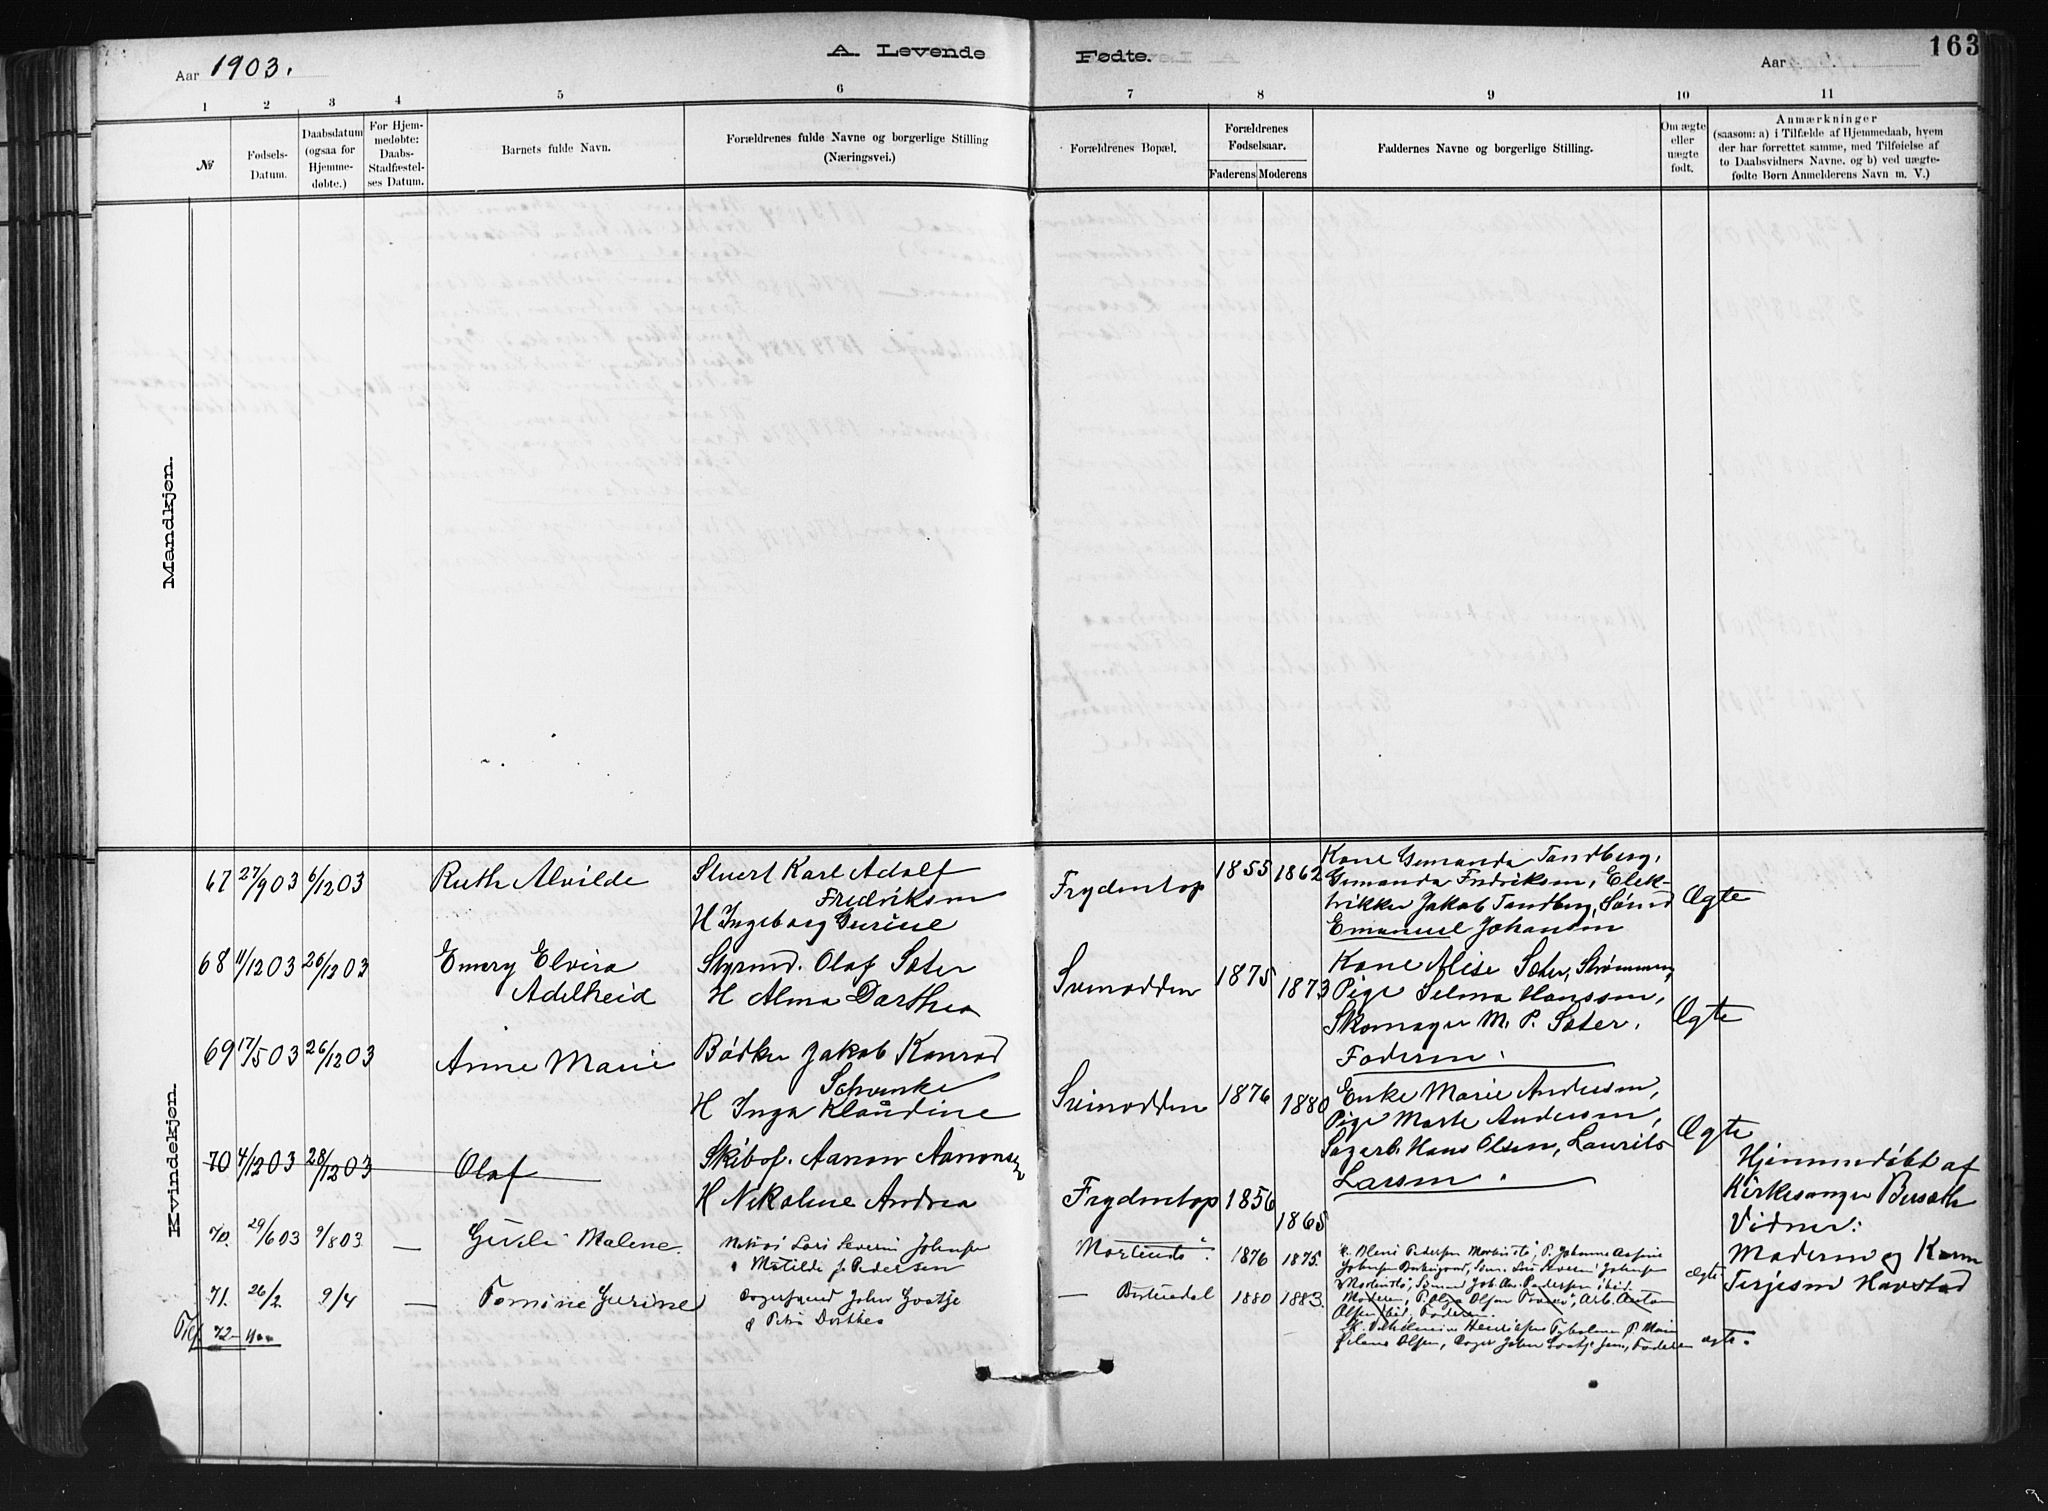 Aar 1903.
A. Levende
Fødte.
Aar
163
1 2 3 4 5 6 7 8 9 10 11
№
Fødsels-
Datum.
Daabsdatum
(ogsaa for
Hjemme-
døbte.)
For Hjem-
medøbte:
Daabs-
Stadfæstel-
ses Datum.
Barnets fulde Navn.
Forældrenes fulde Navne og borgerlige Stilling
(Næringsvei.)
Forældrenes Bopæl.
Forældrenes
Fødselsaar.
Faderens Moderens
Faddernes Navne og borgerlige Stilling.
Om ægte
eller
uægte
født.
Anmærkninger
(saasom: a) i Tilfælde af Hjemmedaab, hvem
der har forrettet samme, med Tilføielse af
to Daabsvidners Navne. og b) ved uægte-
fødte Børn Anmelderens Navn m. V.)
Mandkjøn.
Kvindekjøn.
67 27/9 03 6/12 03
Ruth Alvilde
Stuert Karl Adolf
Fredriksen
H Ingeborg Gurine
Frydentop
1855 1862
Kone Gumanda Tandberg,
Gumanda Fredriksen, Elek-
trikker Jakob Tandberg, Sømd
Emanuel Johansen
Ægte
68 11/12 03 26/12 03
Emery Elvira
Adelheid
Styrmd. Olaf Sæter
H Alma Dorthea
Svinodden
1875 1873
Kone Alise Sæter, Strømmen,
Pige Selma Hanssen,
Skomager M. P. Sæter.
Faderen.
Ægte
69 17/5 03 26/12 03
Anne Marie
Bødker Jakob Konrad
Schvenke
H Inga Klaudine
Svinodden
1876 1880
Enke Marie Andersen,
Pige Marte Andersen,
Sagarb. Hans Olsen, Laurits
Larsen.
Ægte
70 4/12 03 28/12 03
Olaf
Skibsf. Aanon Aanonsen
H Nikoline Andrea
Frydentop
1856 1865
Hjemmedøbt af
Kirkesanger Berseth
Vidner:
Moderen og Karen
Terjesen Havstad
70. 29/6 03 9/8 03 —
Guveli Malene.
Lars Severin Johnsen
Matilde f. Pedersen
"Mortensto".
1876 1875.
ægte
71. 26/2 9/4 —
Tomine Gurine
John Gvatje
& Petra Dorthea
— Berteudal
1880 1883.
Olsen ibid, Faderen
ægte.
72